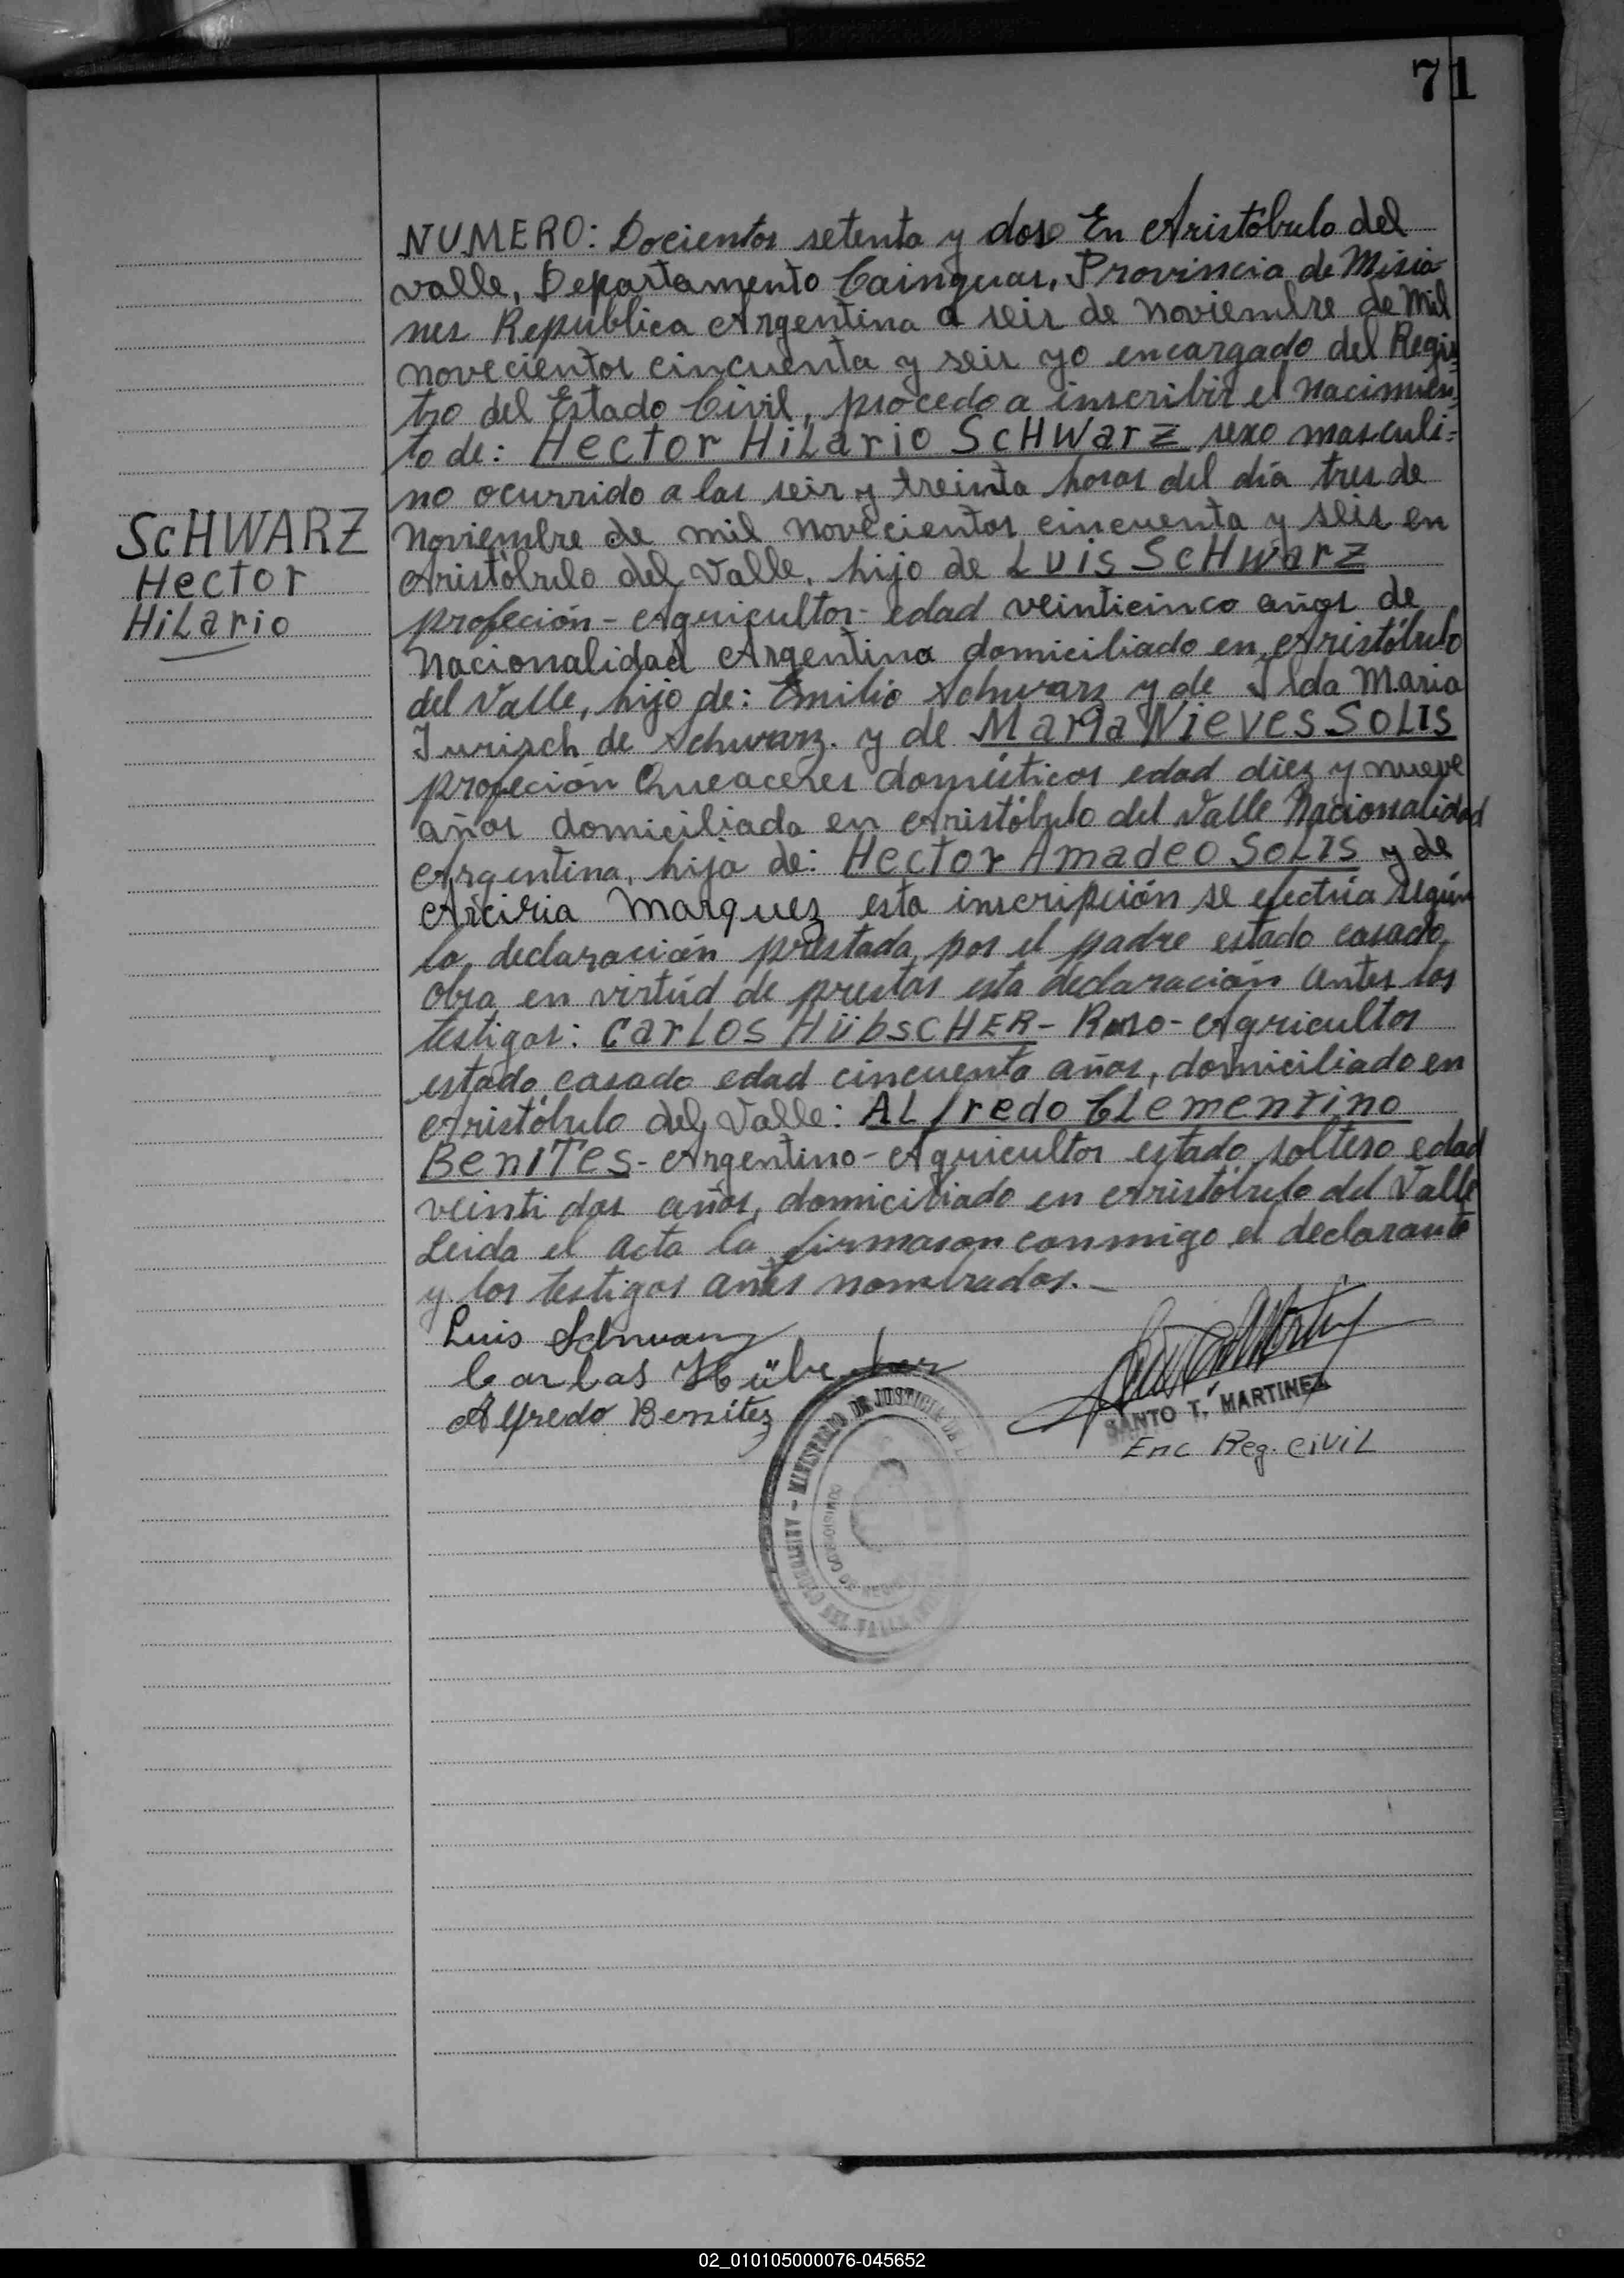 71
NUMERO: Docientos setenta y dos En Aristóbulo del
valle, Departamento Cainguas, Provincia de Misio-
nes Republica Argentina a seis de Noviembre de Mil
novecientos cincuenta y seis yo encargado del Regis-
tro del Estado Civil, procedo a inscribir el nacimien-
to de: Hector Hilario SCHWarz sexo masculi-
no ocurrido a las seis y treinta horas del día tres de
SCHWARZ
Hector
Hilario
Noviembre de mil novecientos cincuenta y seis en
Aristóbulo del Valle, hijo de Luis SCHWarz
profeción - Agricultor - edad veinticinco años de
Nacionalidad Argentina domiciliado en Aristóbulo
del Valle, hijo de: Emilio Schwarz y de Ilda Maria
Jurisch de Schwarz. y de Maria Nieves SOLIS
profeción Queaceres domésticos edad diez y nueve
años domiciliada en Aristóbulo del Valle Nacionalidad
Argentina, hija de: Hector Amadeo SOLIS y de
Arciria Marquez esta inscripción se efectúa según
la declaración prestada por el padre estado casado
obra en virtúd de prestar esta declaración antes los
testigos: Carlos HübscHER - Ruso - Agricultor
estado casado edad cincuenta años, domiciliado en
Aristóbulo del Valle: ALfredo CLementino
BeniTes - Argentino - Agricultor estado soltero edad
veinti dos años, domiciliado en Aristóbulo del Valle
Leida el acta la firmaron conmigo el declarante
y los testigos antes nombrados.-
Luis Schwarz
Carlos Hübscher
Alfredo Benitez
SANTO T. MARTINEZ
Enc Reg. Civil
MINISTERIO DE JUSTICIA DE
ARISTOBULO DEL VALLE
02_010105000076-045652